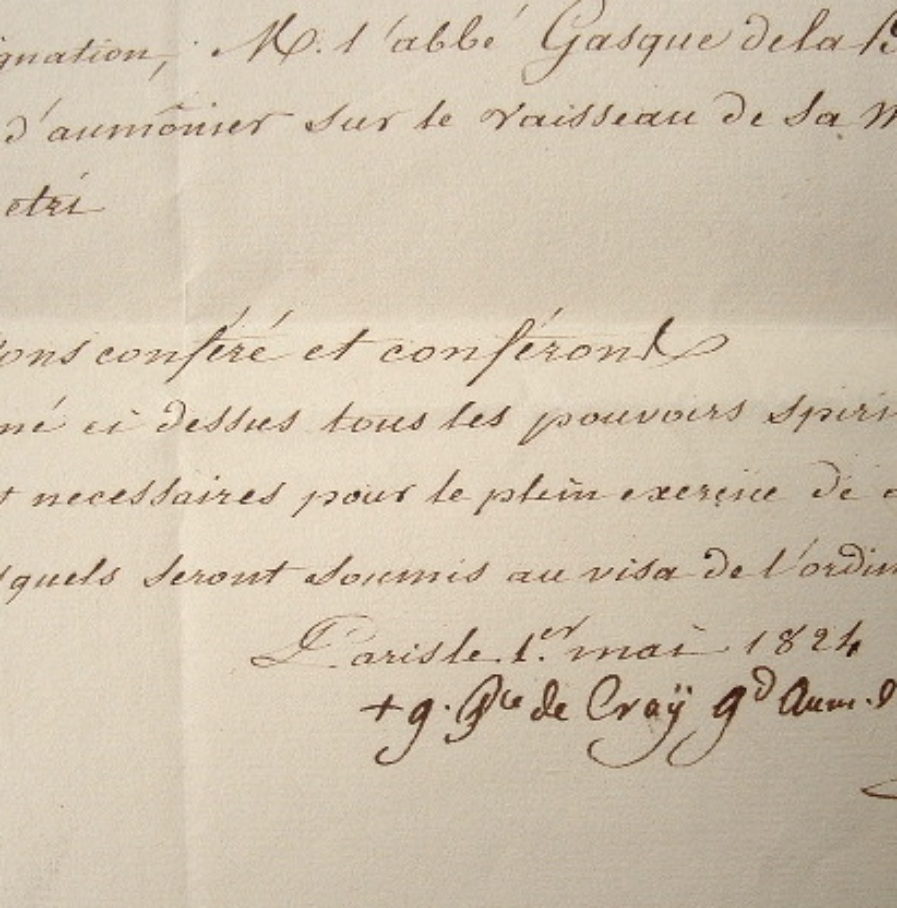 gnation, M. l'abbé Gasque de la
d'aumônier sur le vaisseau de Sa M
etri
ons conféré et conféront
mé ci dessus tous les pouvoirs spiri
t necessaires pour le plein exercice de
squels seront soumis au visa de l'ordin
Paris le 1.er mai 1824
+ g. Pce de Croÿ gd Aum. d